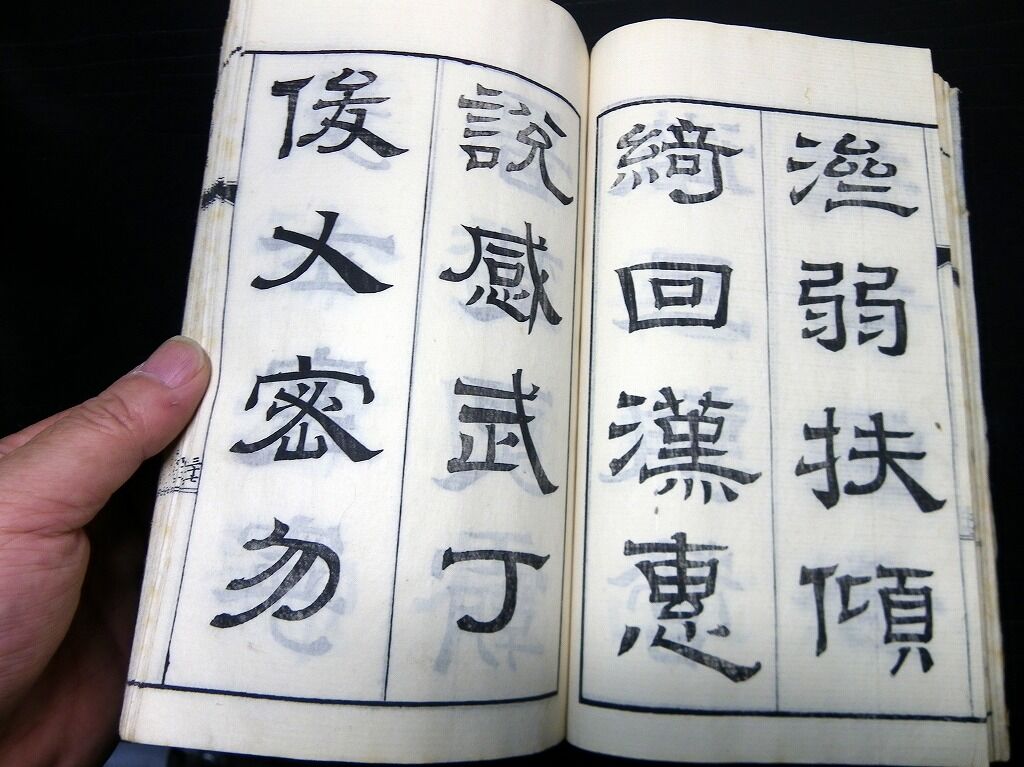 濟弱扶傾
綺回漢惠
説感武丁
俊乂密勿